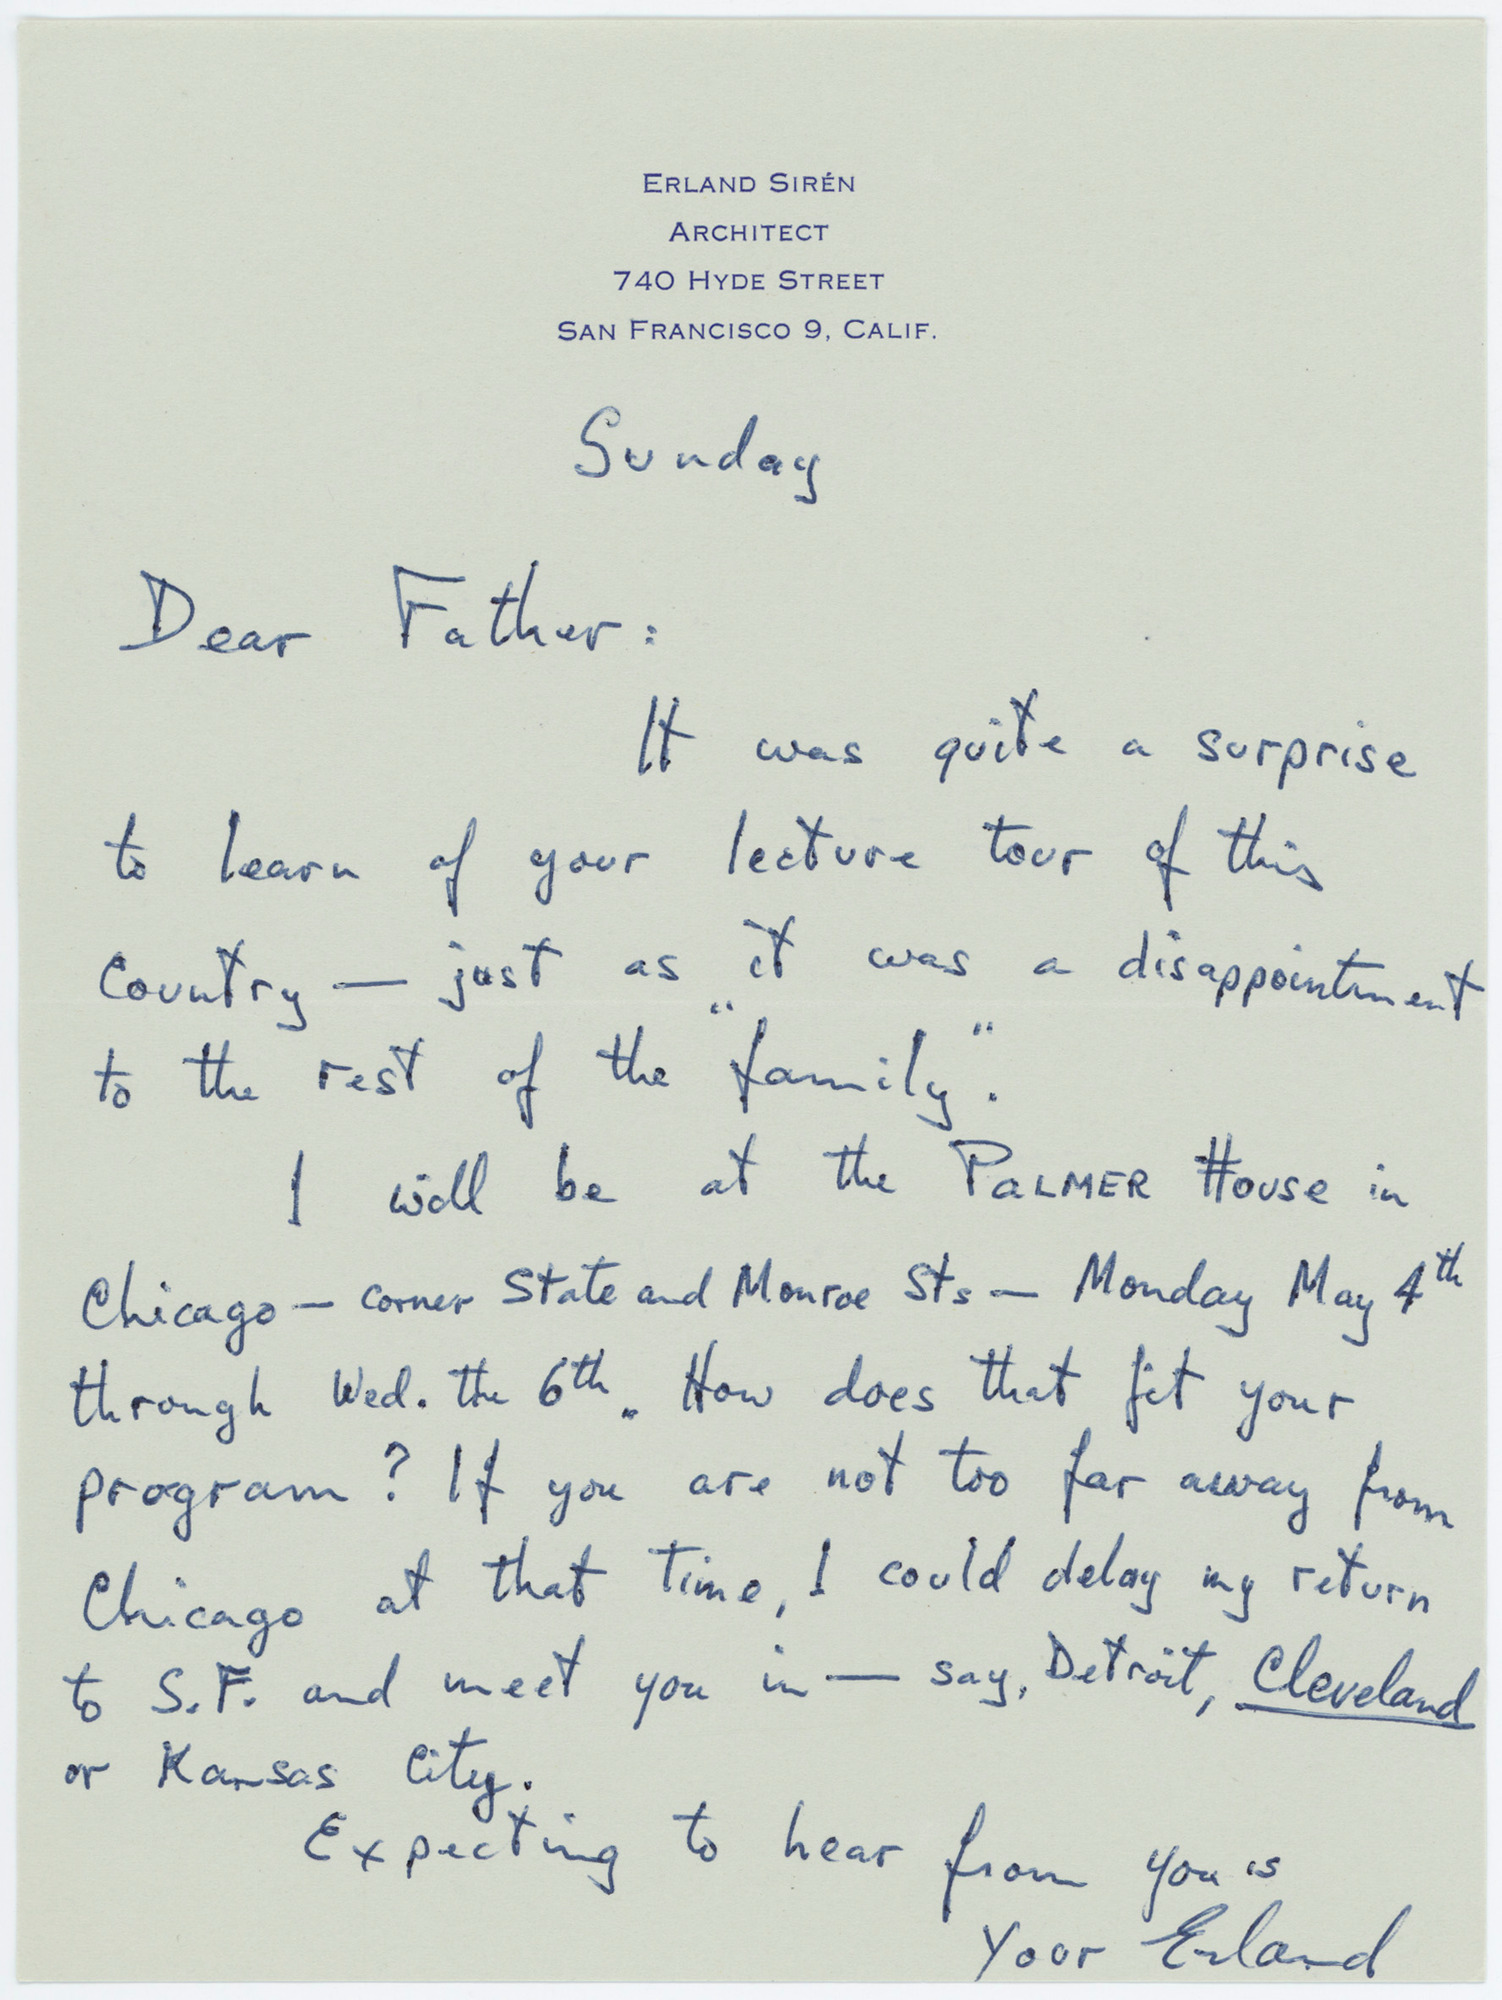 ERLAND SIRÉN
ARCHITECT
740 HYDE STREET
SAN FRANCISCO 9, CALIF.
Sunday
Dear Father:
It was quite a surprise
to learn of your lecture tour of this
Country — just as it was a disappointment
to the rest of the "family".
I will be at the PALMER House in
Chicago — corner State and Monroe Sts — Monday May 4th
through Wed. the 6th. How does that fit your
program? If you are not too far away from
Chicago at that time, I could delay my return
to S.F. and meet you in — say, Detroit, Cleveland
or Kansas City.
Expecting to hear from you is
Your Erland